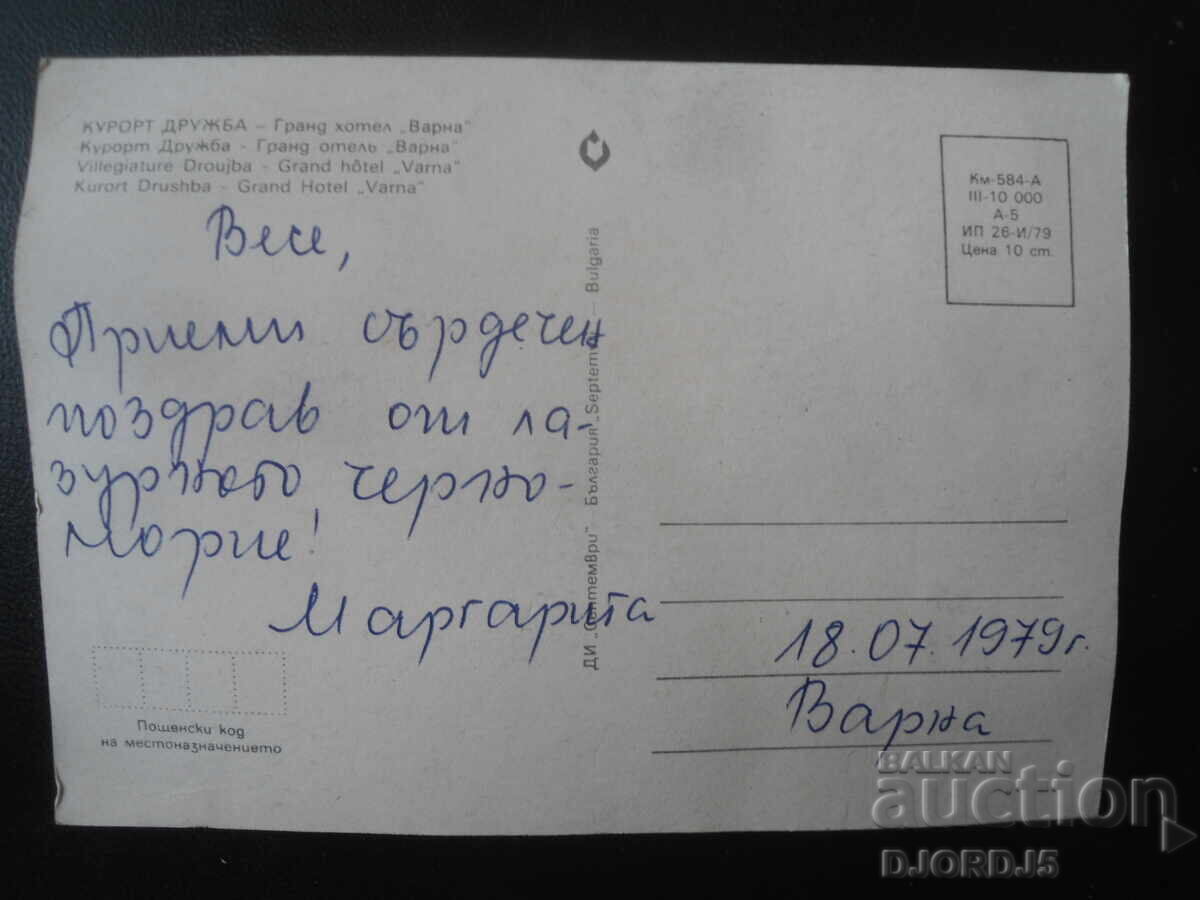 КУРОРТ ДРУЖБА – Гранд хотел „Варна"
Курорт Дружба - Гранд отель „Варна"
Villegiature Droujba - Grand hôtel „Varna"
Kurort Drushba - Grand Hotel „Varna"
Весе,
Приеми сърдечен
поздрав от ла-
зурното черно-
морие!
Маргарита
Пощенски код
на местоназначението
ДИ „Септември" България „Septemvri" — Bulgaria
Км-584-А
III-10 000
А-5
ИП 26-И/79
Цена 10 ст.
18.07.1979г.
Варна
BALKAN
auction
DJORDJ5